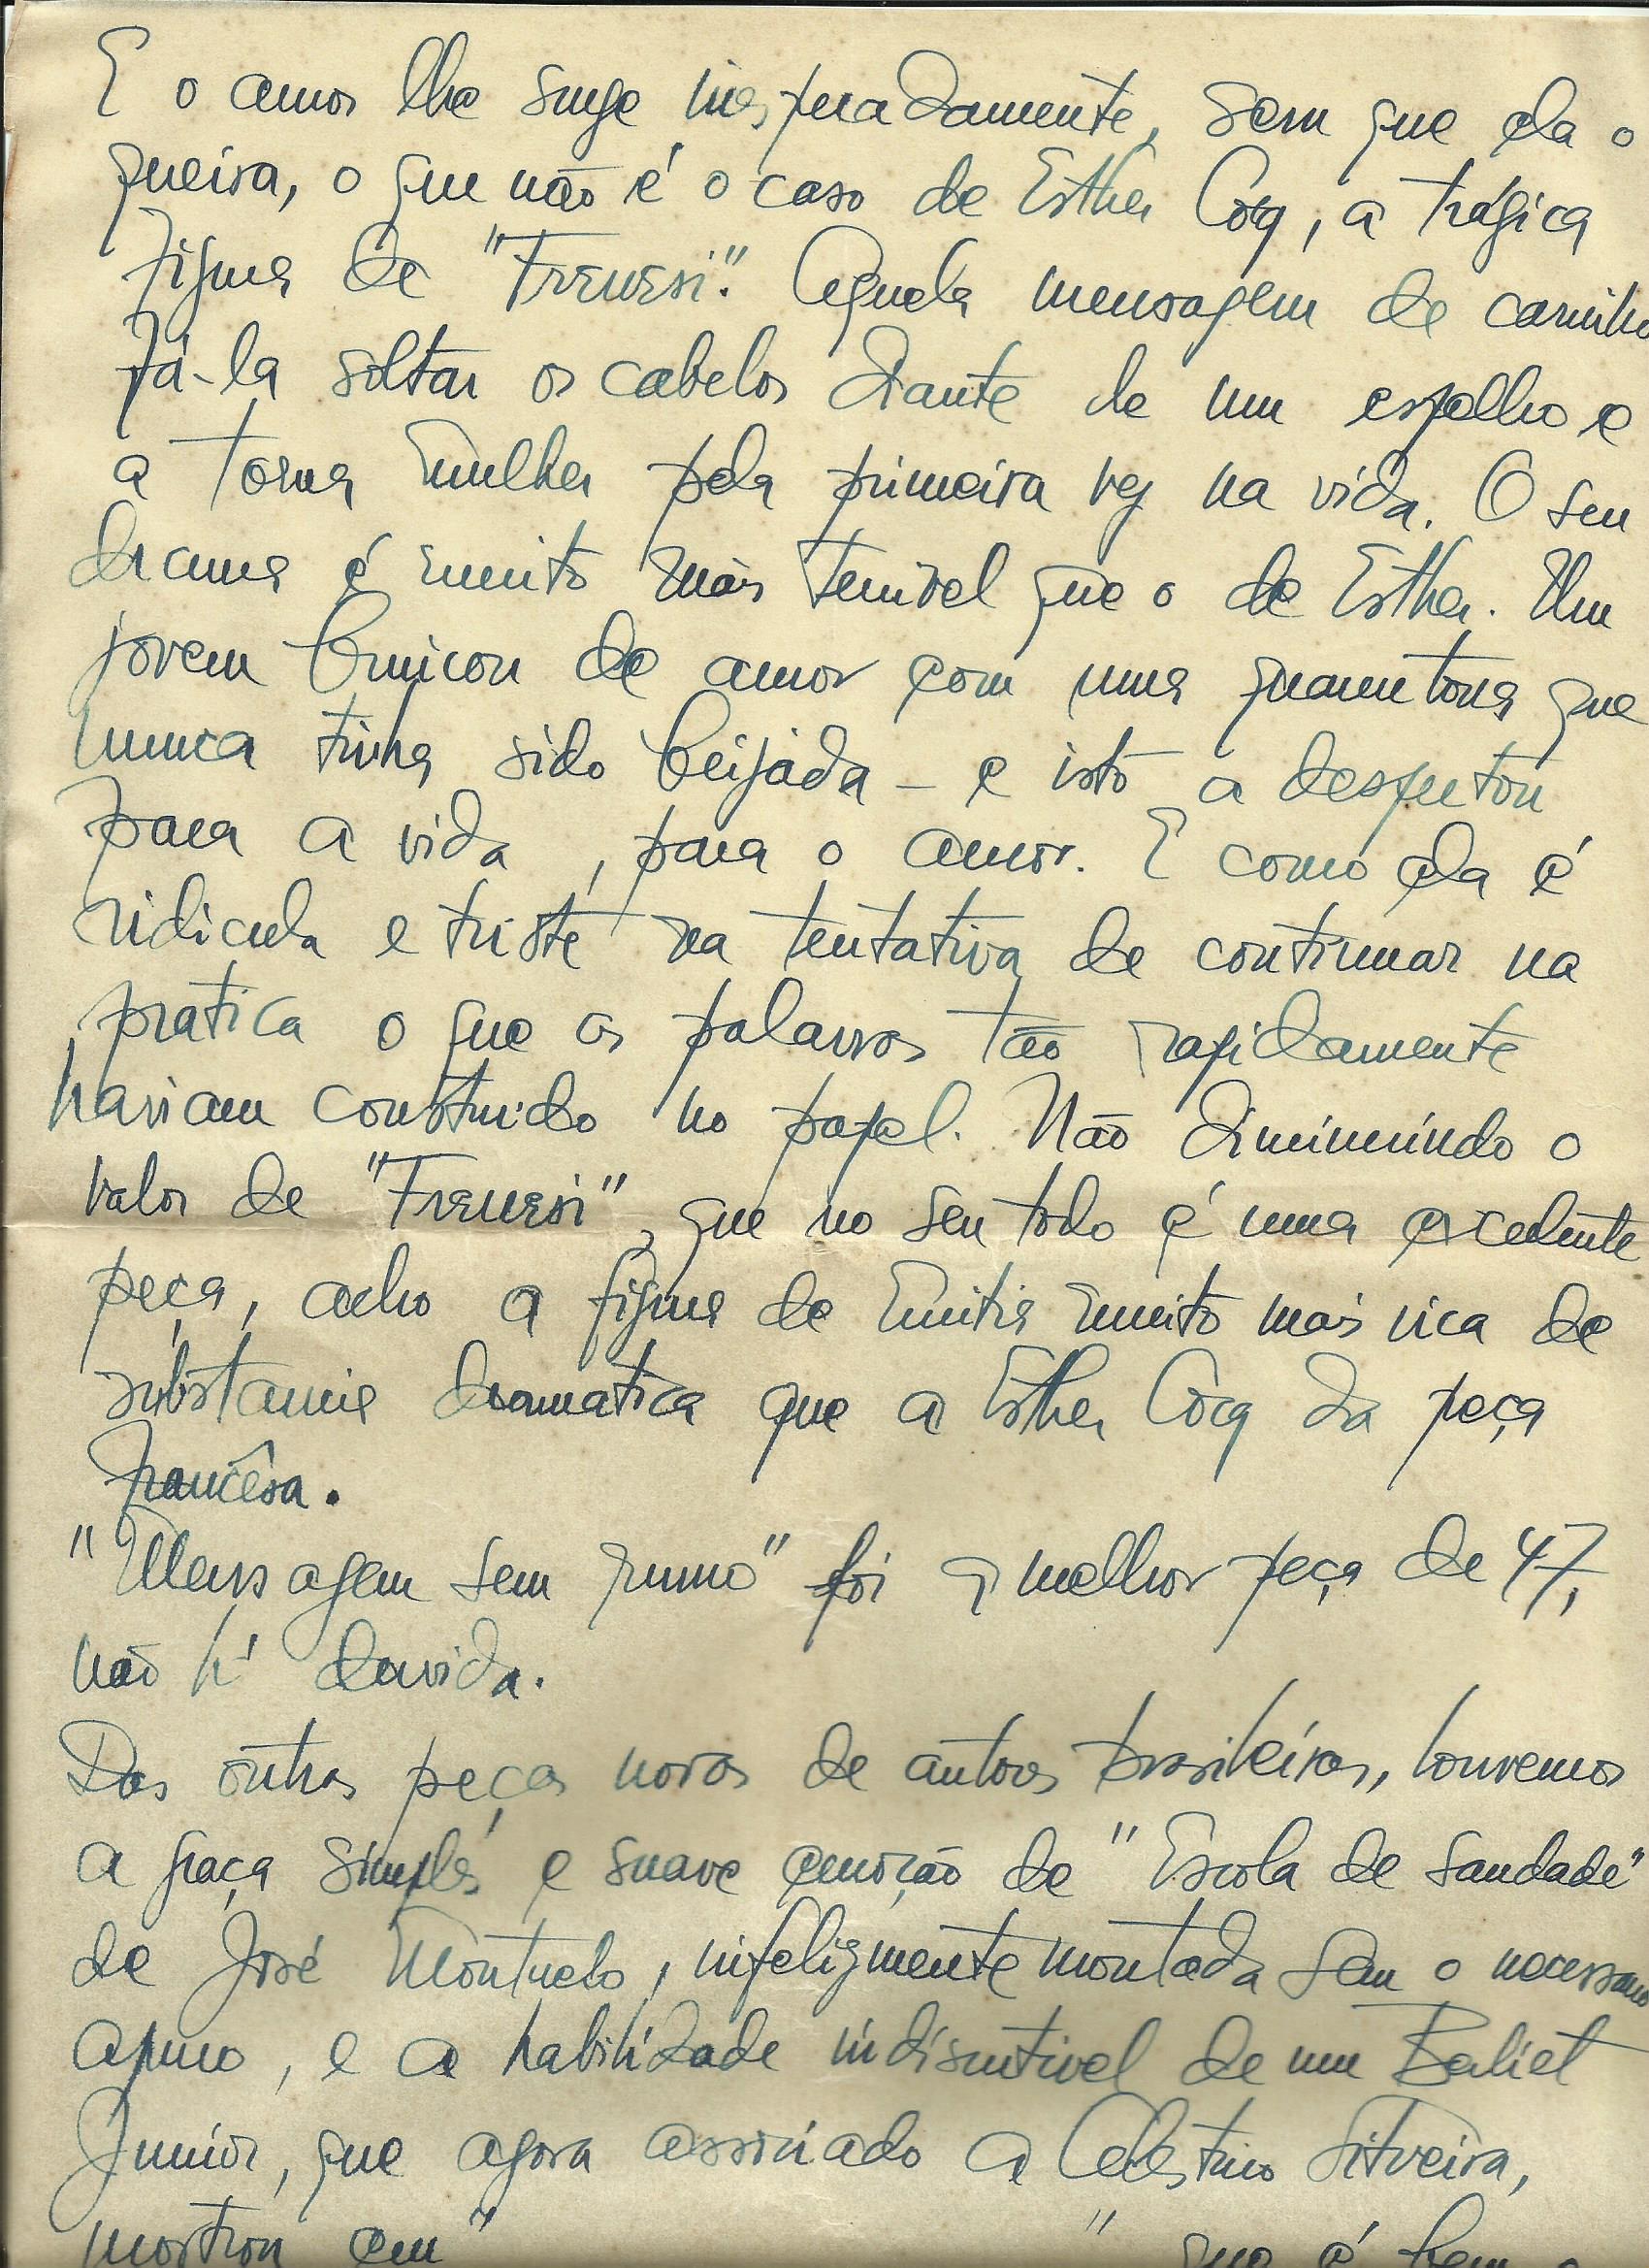 E o amor lhe surge inesperadamente, sem que ela o
queira, o que não é o caso de Esther Cocq, a trágica
figura de "Frenesi". Aquela mensagem de carinho
fá-la soltar os cabelos diante de um espelho e
a torna mulher pela primeira vez na vida. O seu
drama é muito mais terrivel que o de Esther. Um
jovem brincou de amor com uma quarentona que
nunca tinha sido beijada – e isto a despertou
para a vida, para o amor. E como ela é
ridicula e triste na tentativa de continuar na
pratica o que as palavras tão rapidamente
haviam construido no papel. Não diminuindo o
valor de "Frenesi", que no seu todo é uma excelente
peça, acho a figura de muito mais rica de
substancia dramatica que a Esther Cocq da peça
francêsa.
"Mensagem sem rumo" foi a melhor peça de 47,
não há duvida.
Das outras peças novas de autores brasileiros, louvemos
a graça simples e suave emoção de "Escola de saudade"
de José Montuelo, infelizmente montada sem o necessario
apuro, e a habilidade indiscutivel de um Beliet
Junior, que agora associado a Celestino Silveira,
mostrou em " " que é bem